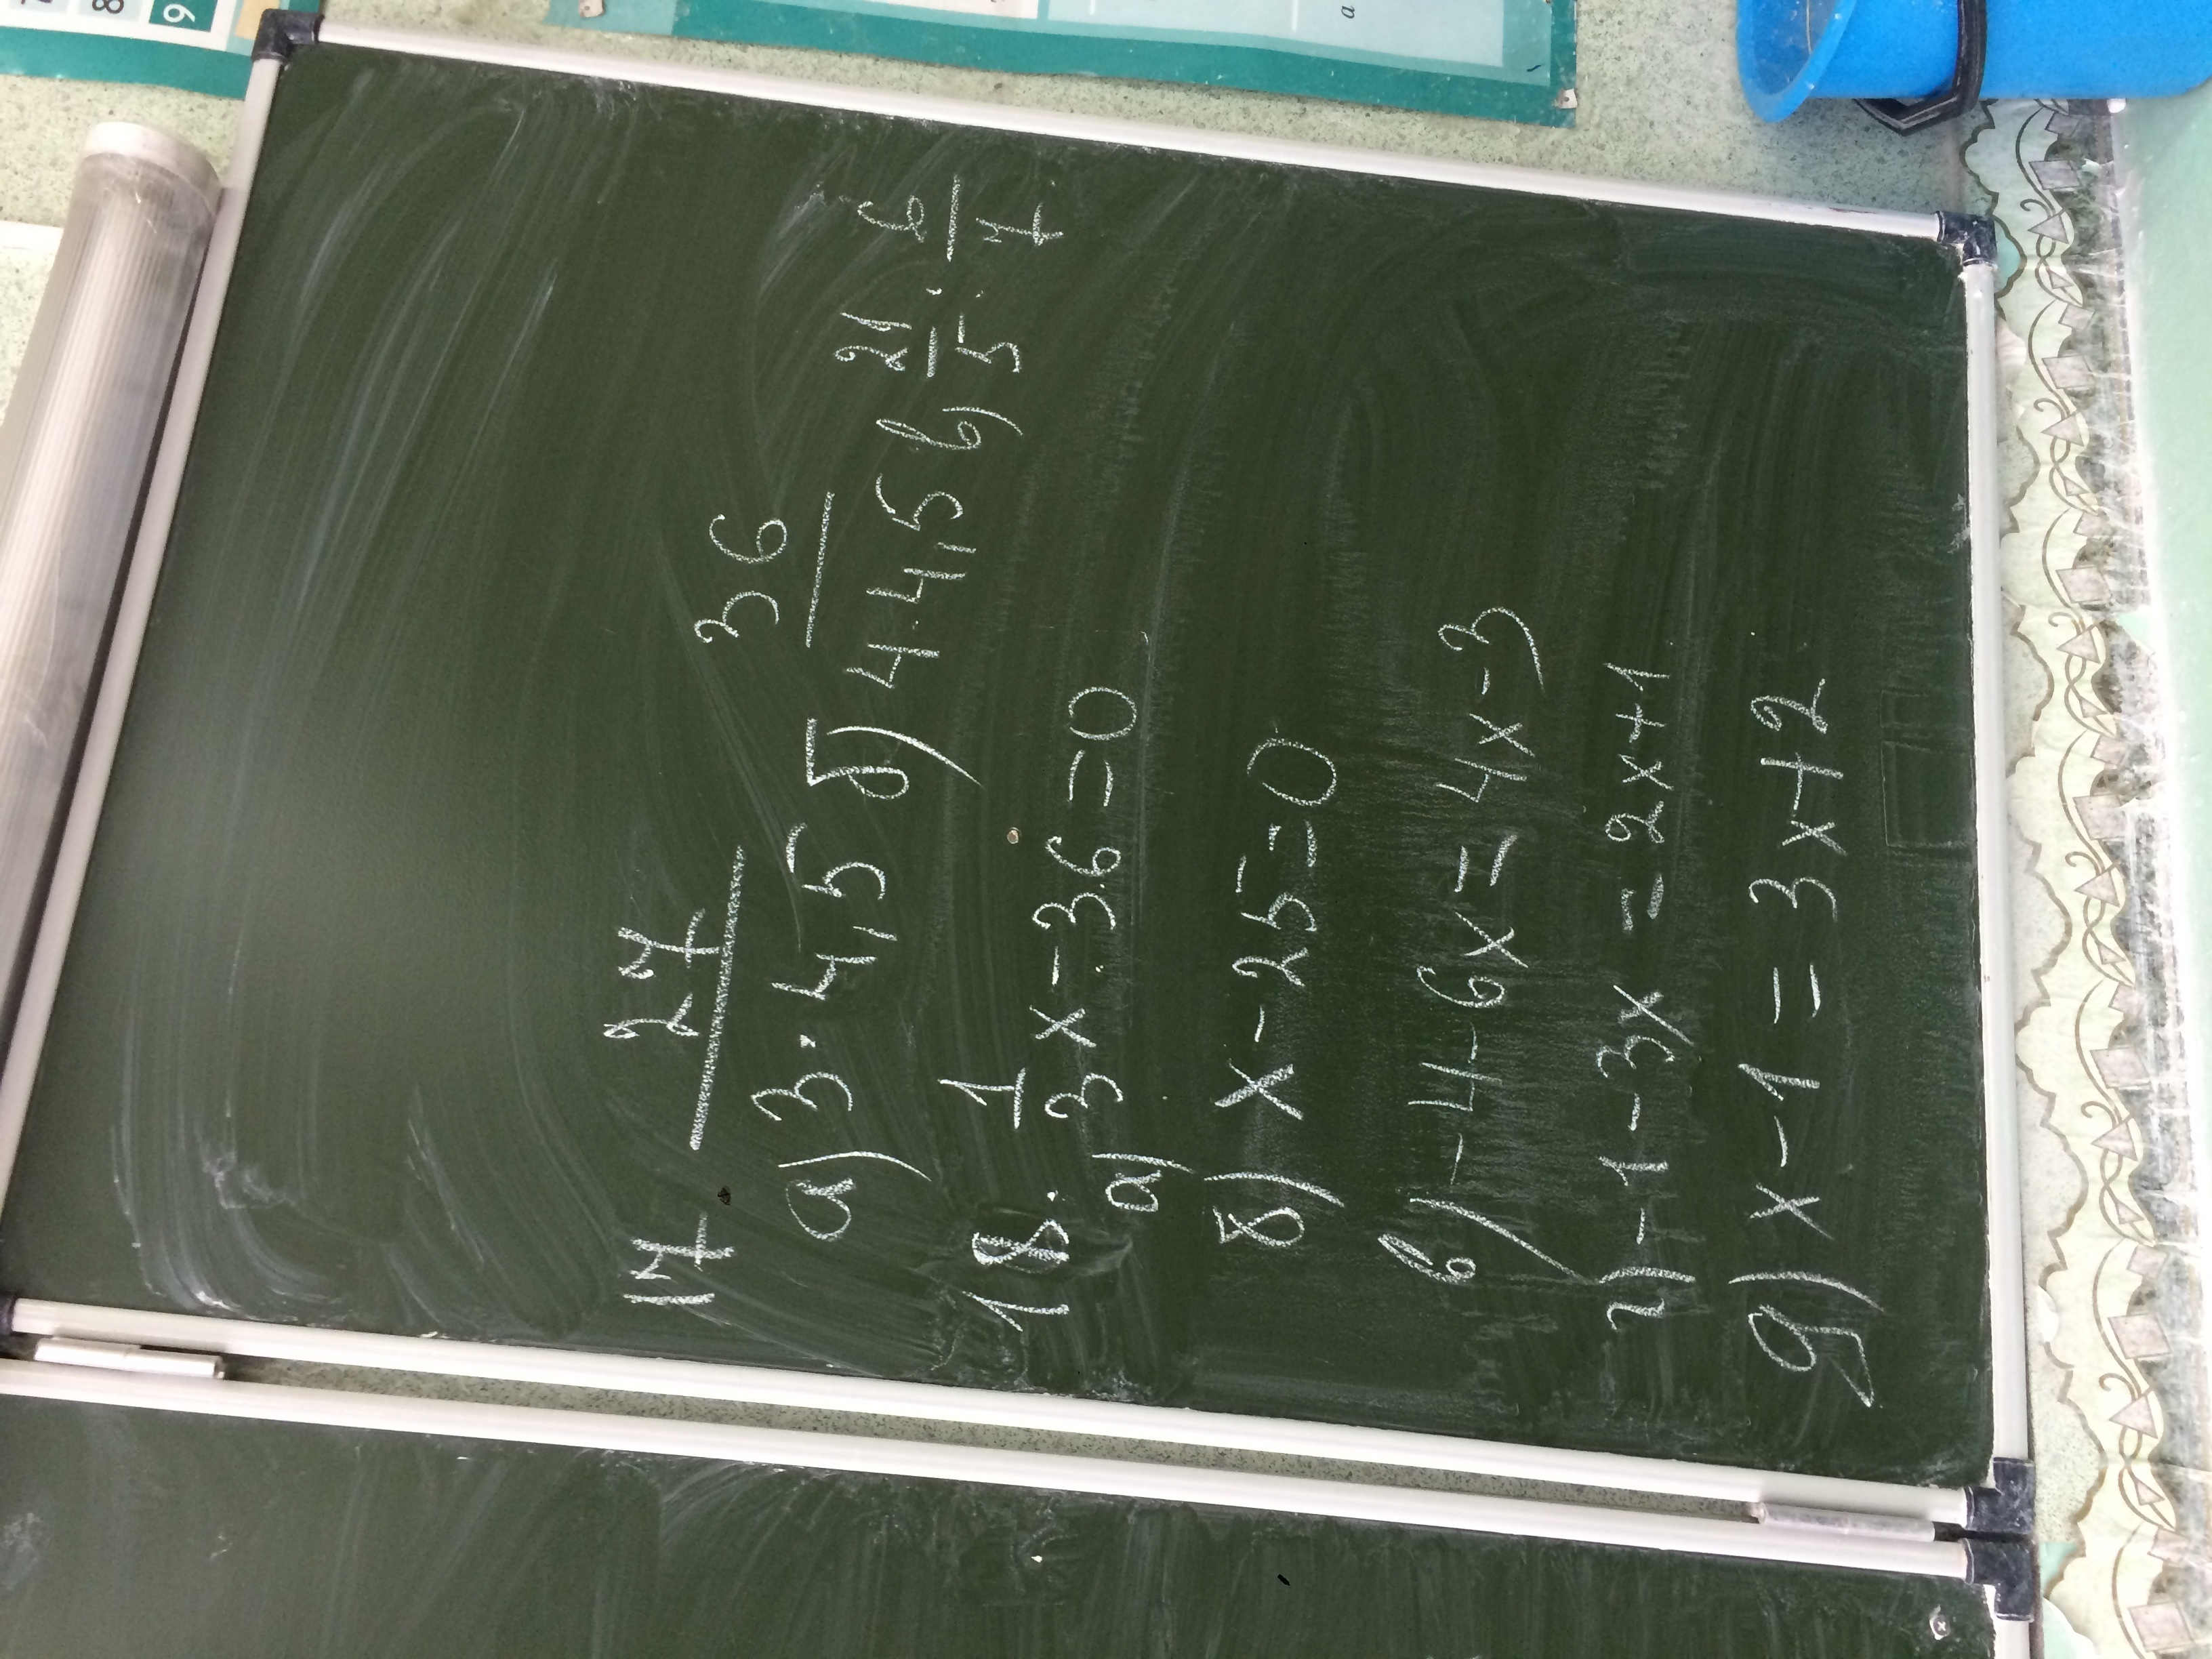 17 a) 27/(3·4,5) б) 36/(4·4,5) в) 21/5 : 6/7
18. а) 1/3 x - 36 = 0
б) x - 25 = 0
в) -4 - 6x = 4x - 3
г) -1 - 3x = 2x + 1
д) x - 1 = 3x + 2
7
8
9
a